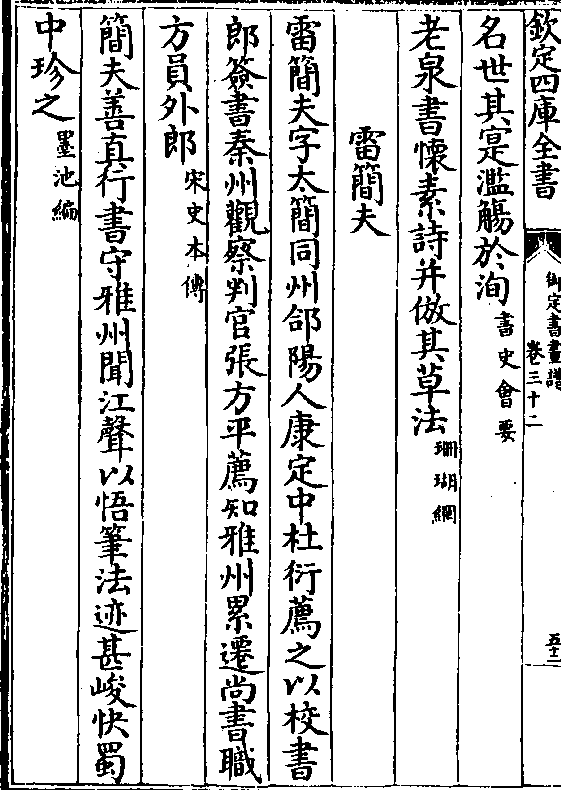 欽定四庫全書
御定書畫譜
卷三十二
五十二
名世其寔濫觴於洵書史會要
老泉書懷素詩并倣其草法珊瑚網
雷簡夫
雷簡夫字太簡同州郃陽人康定中杜衍薦之以校書
郎簽書秦州觀察判官張方平薦知雅州累遷尚書職
方員外郎宋史本傳
簡夫善真行書守雅州聞江聲以悟筆法迹甚峻快蜀
中珍之墨池編